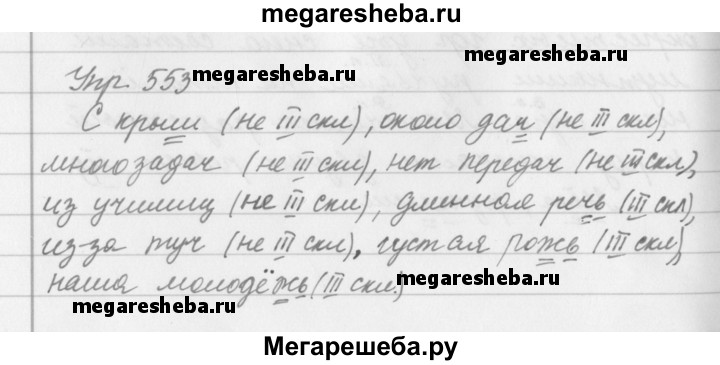 megaresheba.ru
Упр 553 megaresheba.ru megaresheba.ru
С крыш (не III скл), около дач (не III скл),
много задач (не III скл), нет передач (не III скл),
из училищ (не III скл), длинная речь (III скл),
из-за туч (не III скл), густая рожь (III скл),
наша молодёжь (III скл.)
megaresheba.ru megaresheba.ru
Мегарешеба.ру